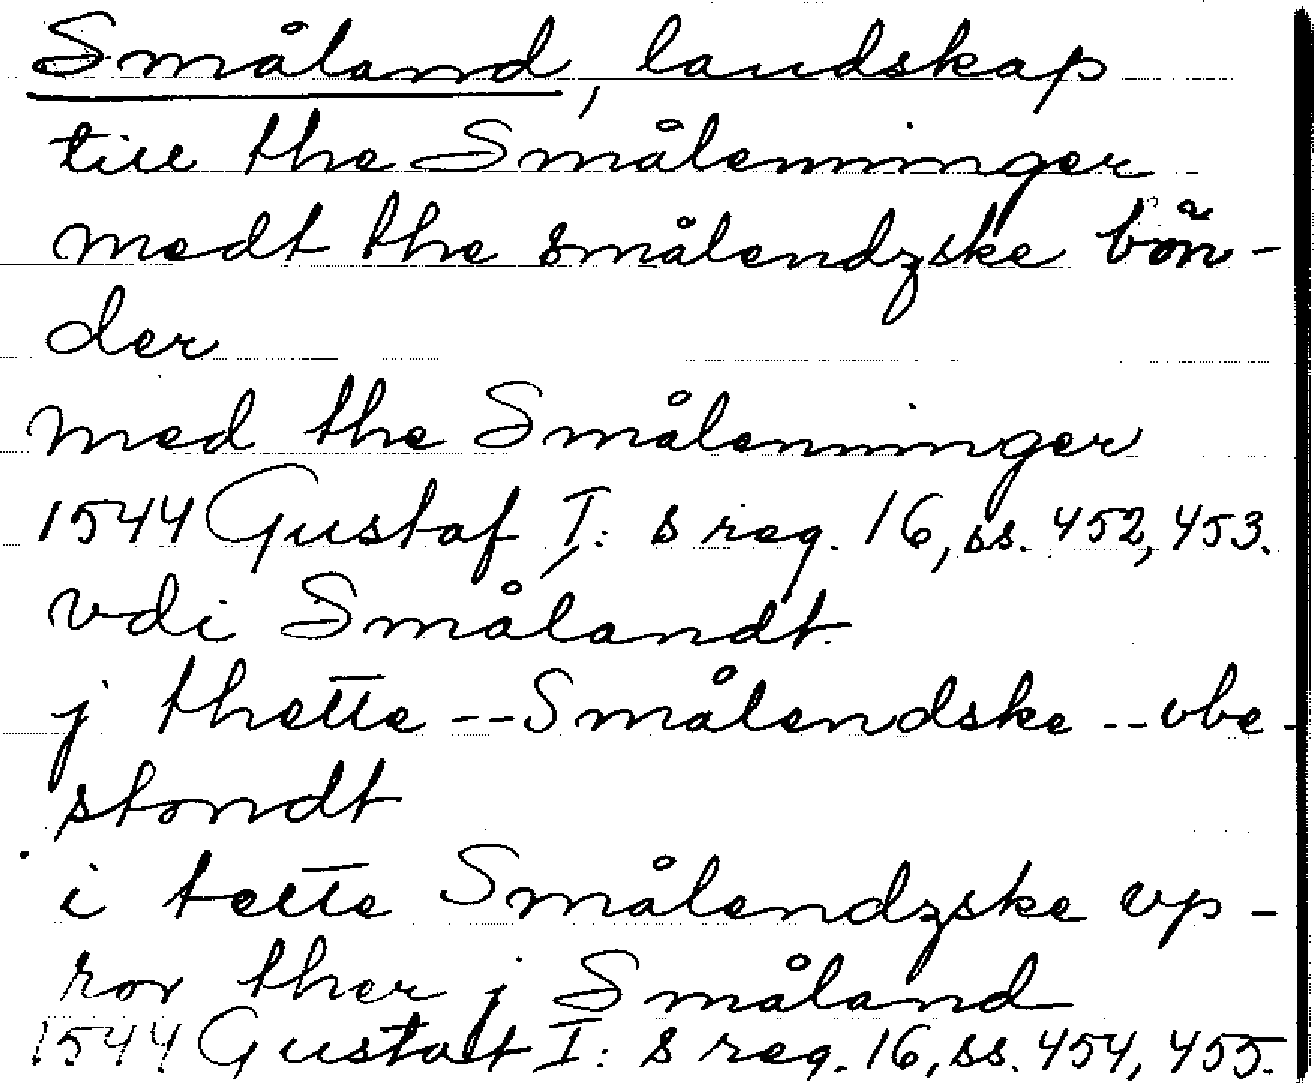 Småland, landskap
till the Smålenninger
medt the smålendzske bön-
der
med the Smålenninger
1544 Gustaf I: s reg. 16, ss. 452, 453.
vdi Smålandt
j thette -- Smålendske -- vbe-
stondt
i tette Smålendzske vp-
ror ther j Småland
1544 Gustaf I: s reg. 16, ss. 454, 455.